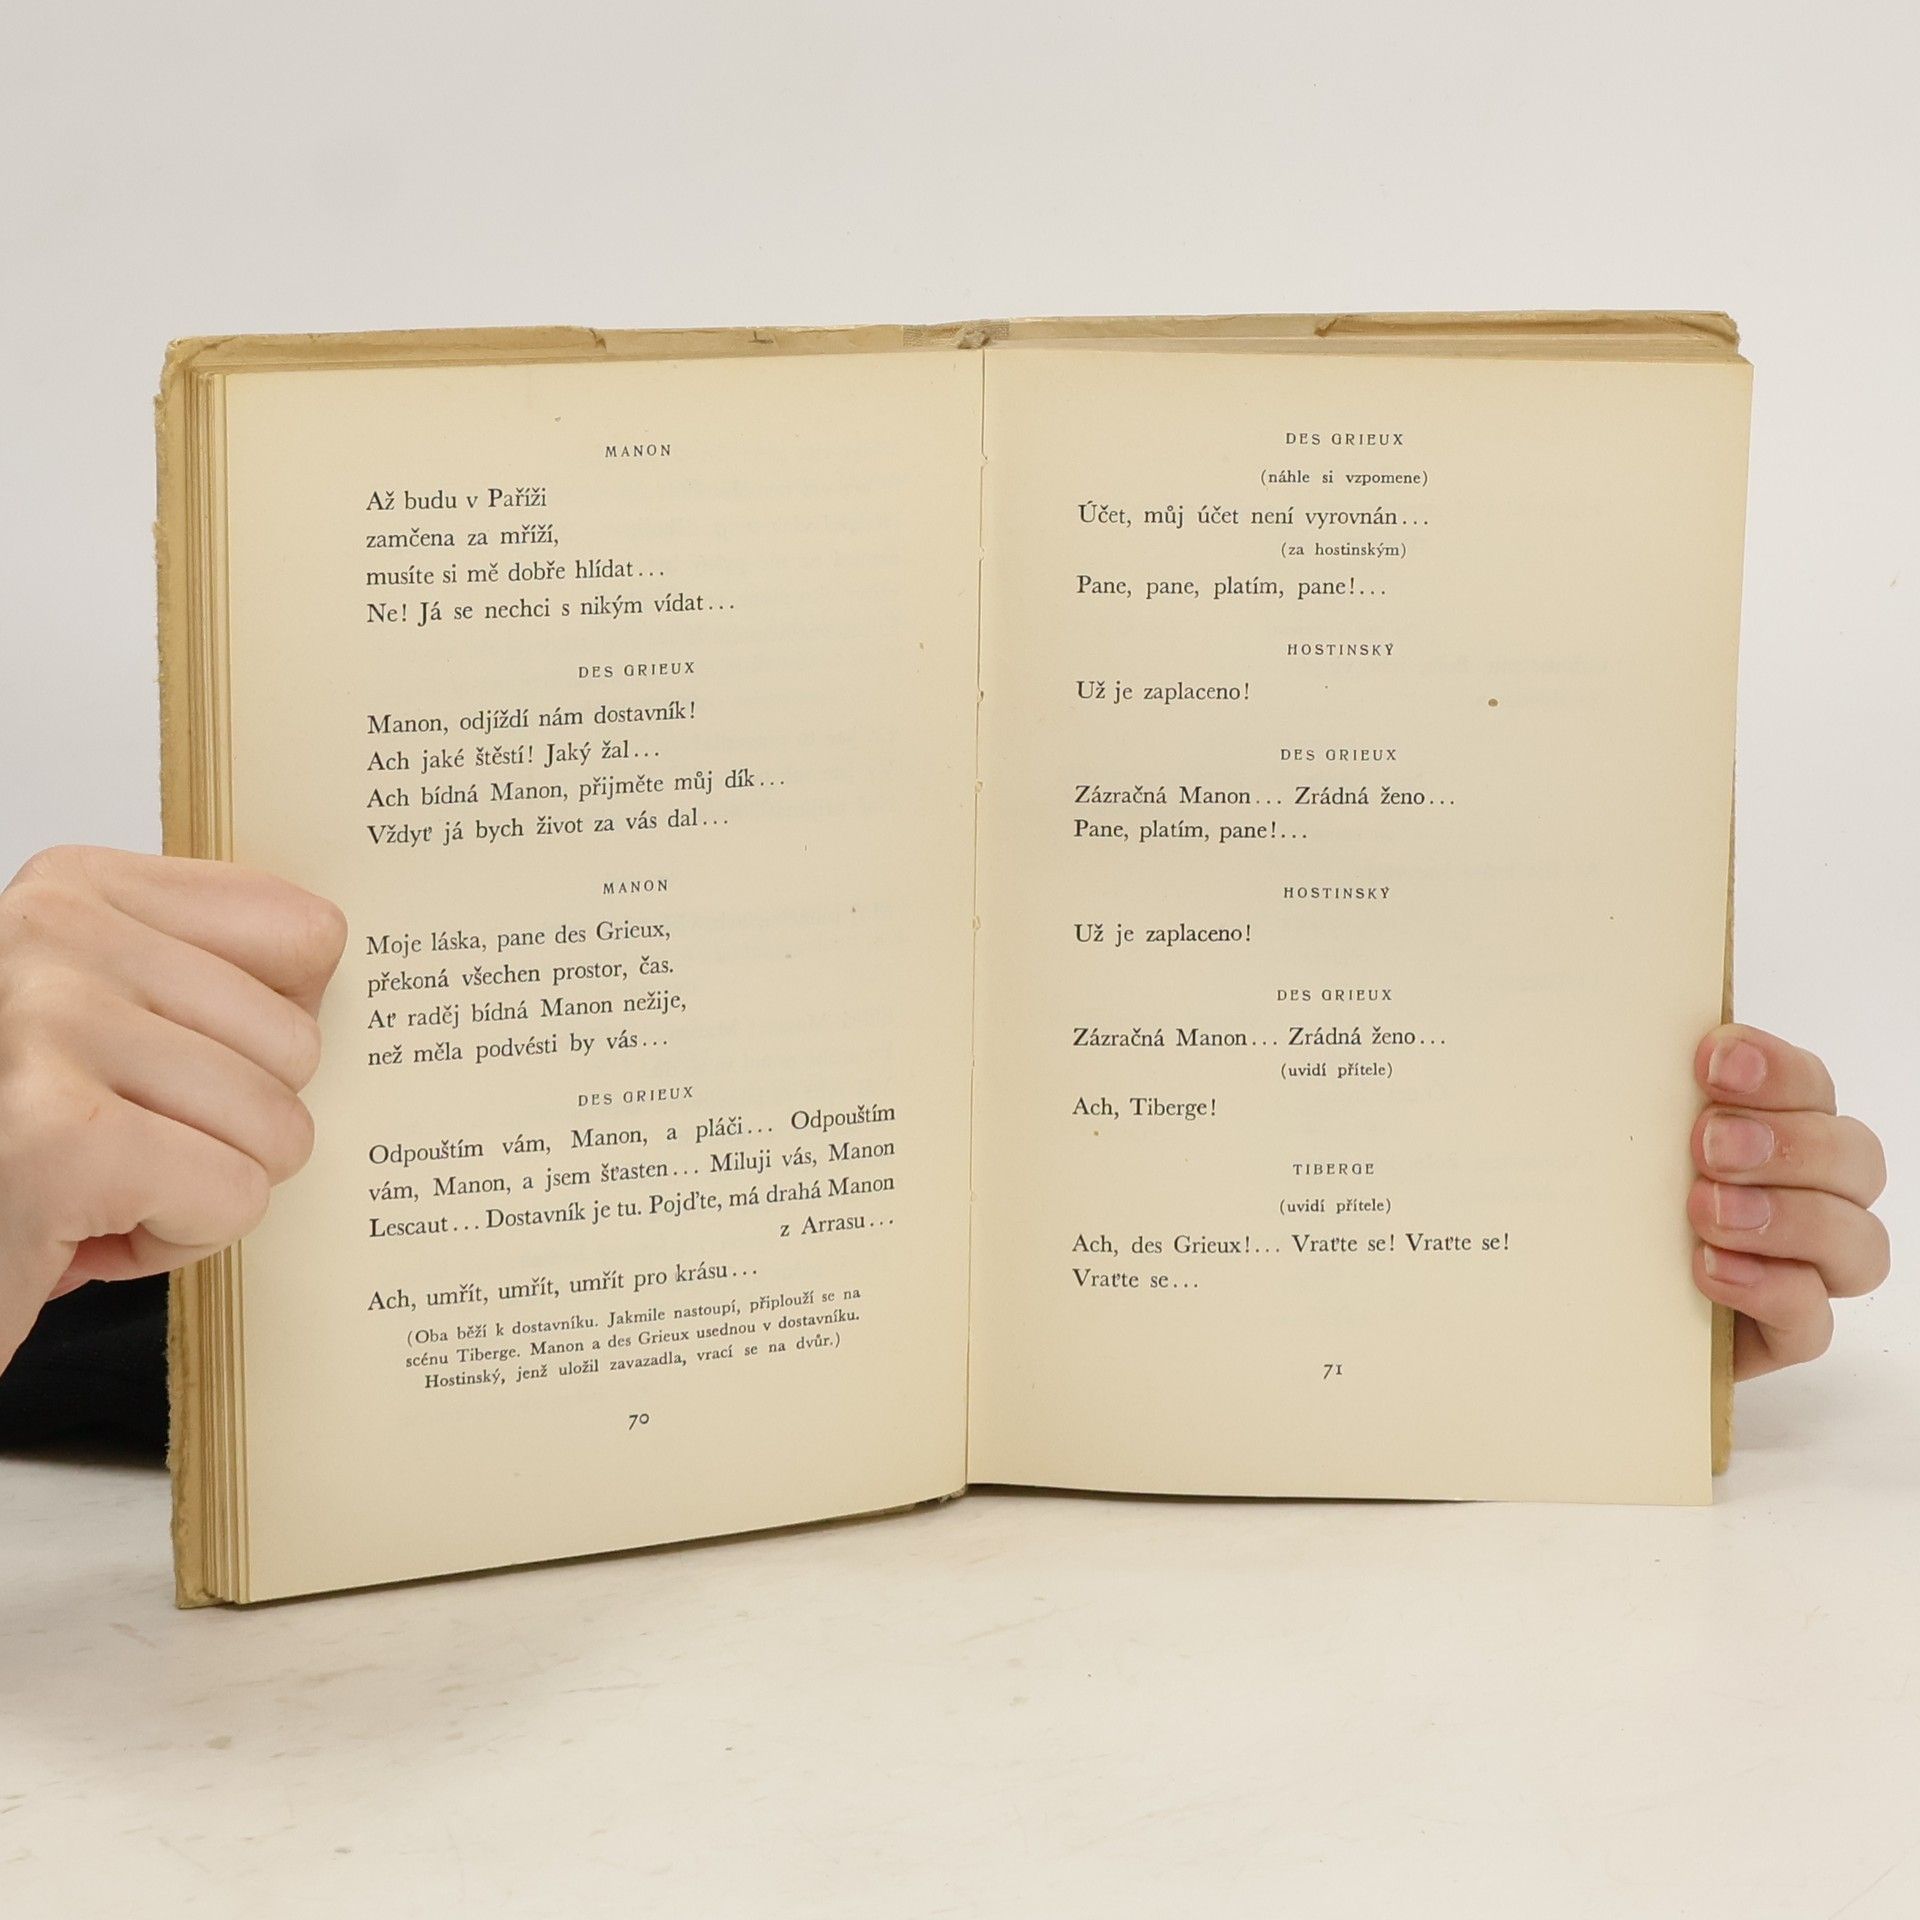 MANON
Až budu v Paříži
zamčena za mříží,
musíte si mě dobře hlídat...
Ne! Já se nechci s nikým vídat...
DES GRIEUX
Manon, odjíždí nám dostavník!
Ach jaké štěstí! Jaký žal...
Ach bídná Manon, přijměte můj dík...
Vždyť já bych život za vás dal...
MANON
Moje láska, pane des Grieux,
překoná všechen prostor, čas.
Ať raděj bídná Manon nežije,
než měla podvésti by vás...
DES GRIEUX
Odpouštím vám, Manon, a pláči... Odpouštím
vám, Manon, a jsem šťasten... Miluji vás, Manon
Lescaut... Dostavník je tu. Pojďte, má drahá Manon
z Arrasu...
Ach, umřít, umřít, umřít pro krásu...
(Oba běží k dostavníku. Jakmile nastoupí, připlouží se na
scénu Tiberge. Manon a des Grieux usednou v dostavníku.
Hostinský, jenž uložil zavazadla, vrací se na dvůr.)
70
DES GRIEUX
(náhle si vzpomene)
Účet, můj účet není vyrovnán...
(za hostinským)
Pane, pane, platím, pane!...
HOSTINSKÝ
Už je zaplaceno!
DES GRIEUX
Zázračná Manon... Zrádná ženo...
Pane, platím, pane!...
HOSTINSKÝ
Už je zaplaceno!
DES GRIEUX
Zázračná Manon... Zrádná ženo...
(uvidí přítele)
Ach, Tiberge!
TIBERGE
(uvidí přítele)
Ach, des Grieux!... Vraťte se! Vraťte se!
Vraťte se...
71